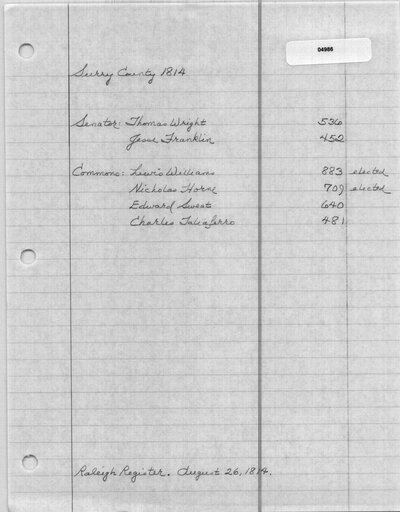 04986
Surry County 1814
Senator: Thomas Wright 536
Jesse Franklin 452
Commons: Lewis Williams 883 elected
Nicholas Horne 709 elected
Edward Sweat 640
Charles Taliaferro 481
Raleigh Register. August 26, 1814.